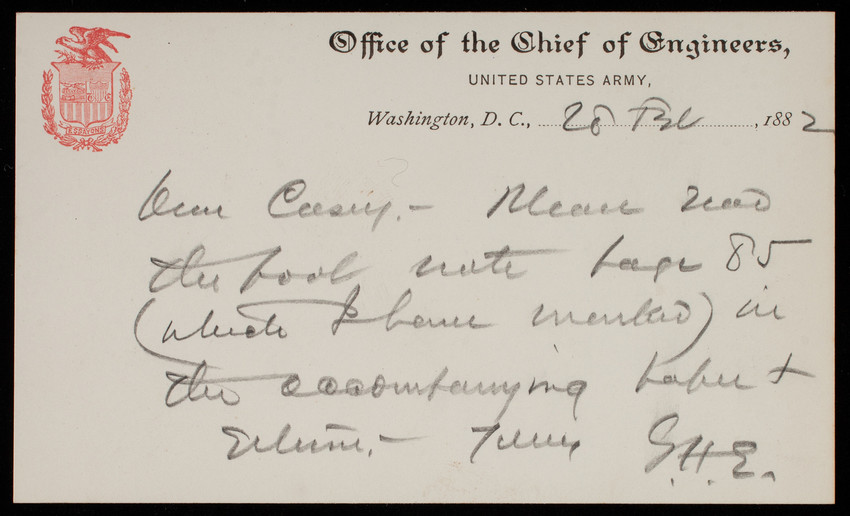 Office of the Chief of Engineers,
UNITED STATES ARMY,
Washington, D. C., 28 Feb, 1882
ESSAYONS
Dear Casey,- Please read
the foot note page 85
(which I have marked) in
the accompanying paper &
return,- Truly G.H.E.